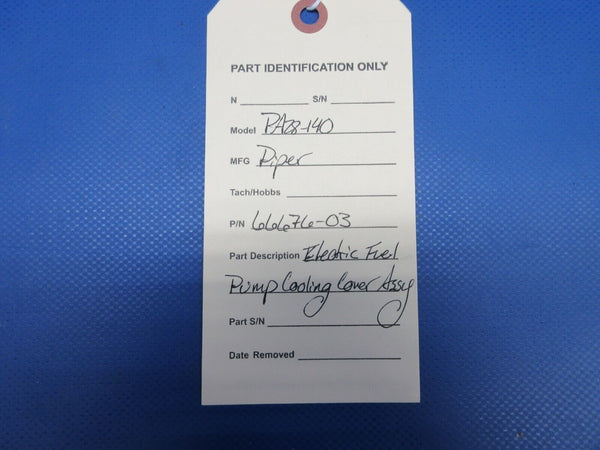 PART IDENTIFICATION ONLY
N S/N
Model PA28-140
MFG Piper
Tach/Hobbs
P/N 66676-03
Part Description Electric Fuel
Pump Cooling Cover Assy
Part S/N
Date Removed